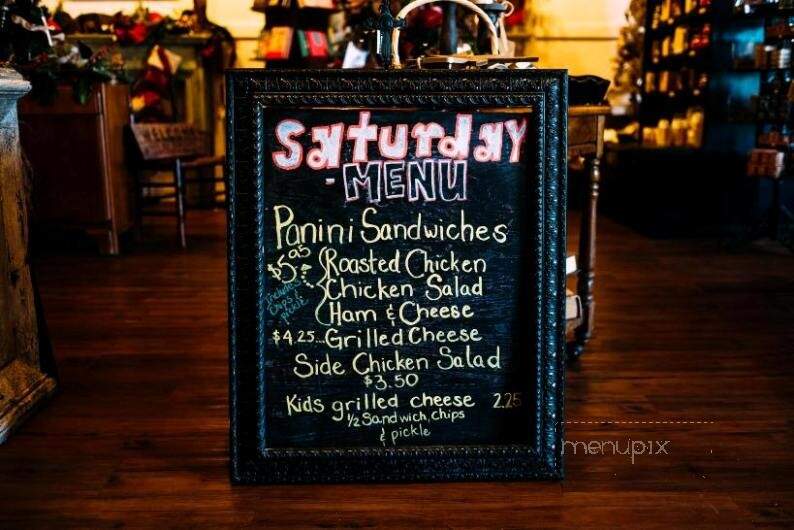 Saturday
-MENU
Panini Sandwiches
$5.95
Roasted Chicken
Chicken Salad
Ham & Cheese
includes
chips &
pickle
$4.25...Grilled Cheese
Side Chicken Salad
$3.50
Kids grilled cheese 2.25
½ Sandwich, chips
& pickle
menupix